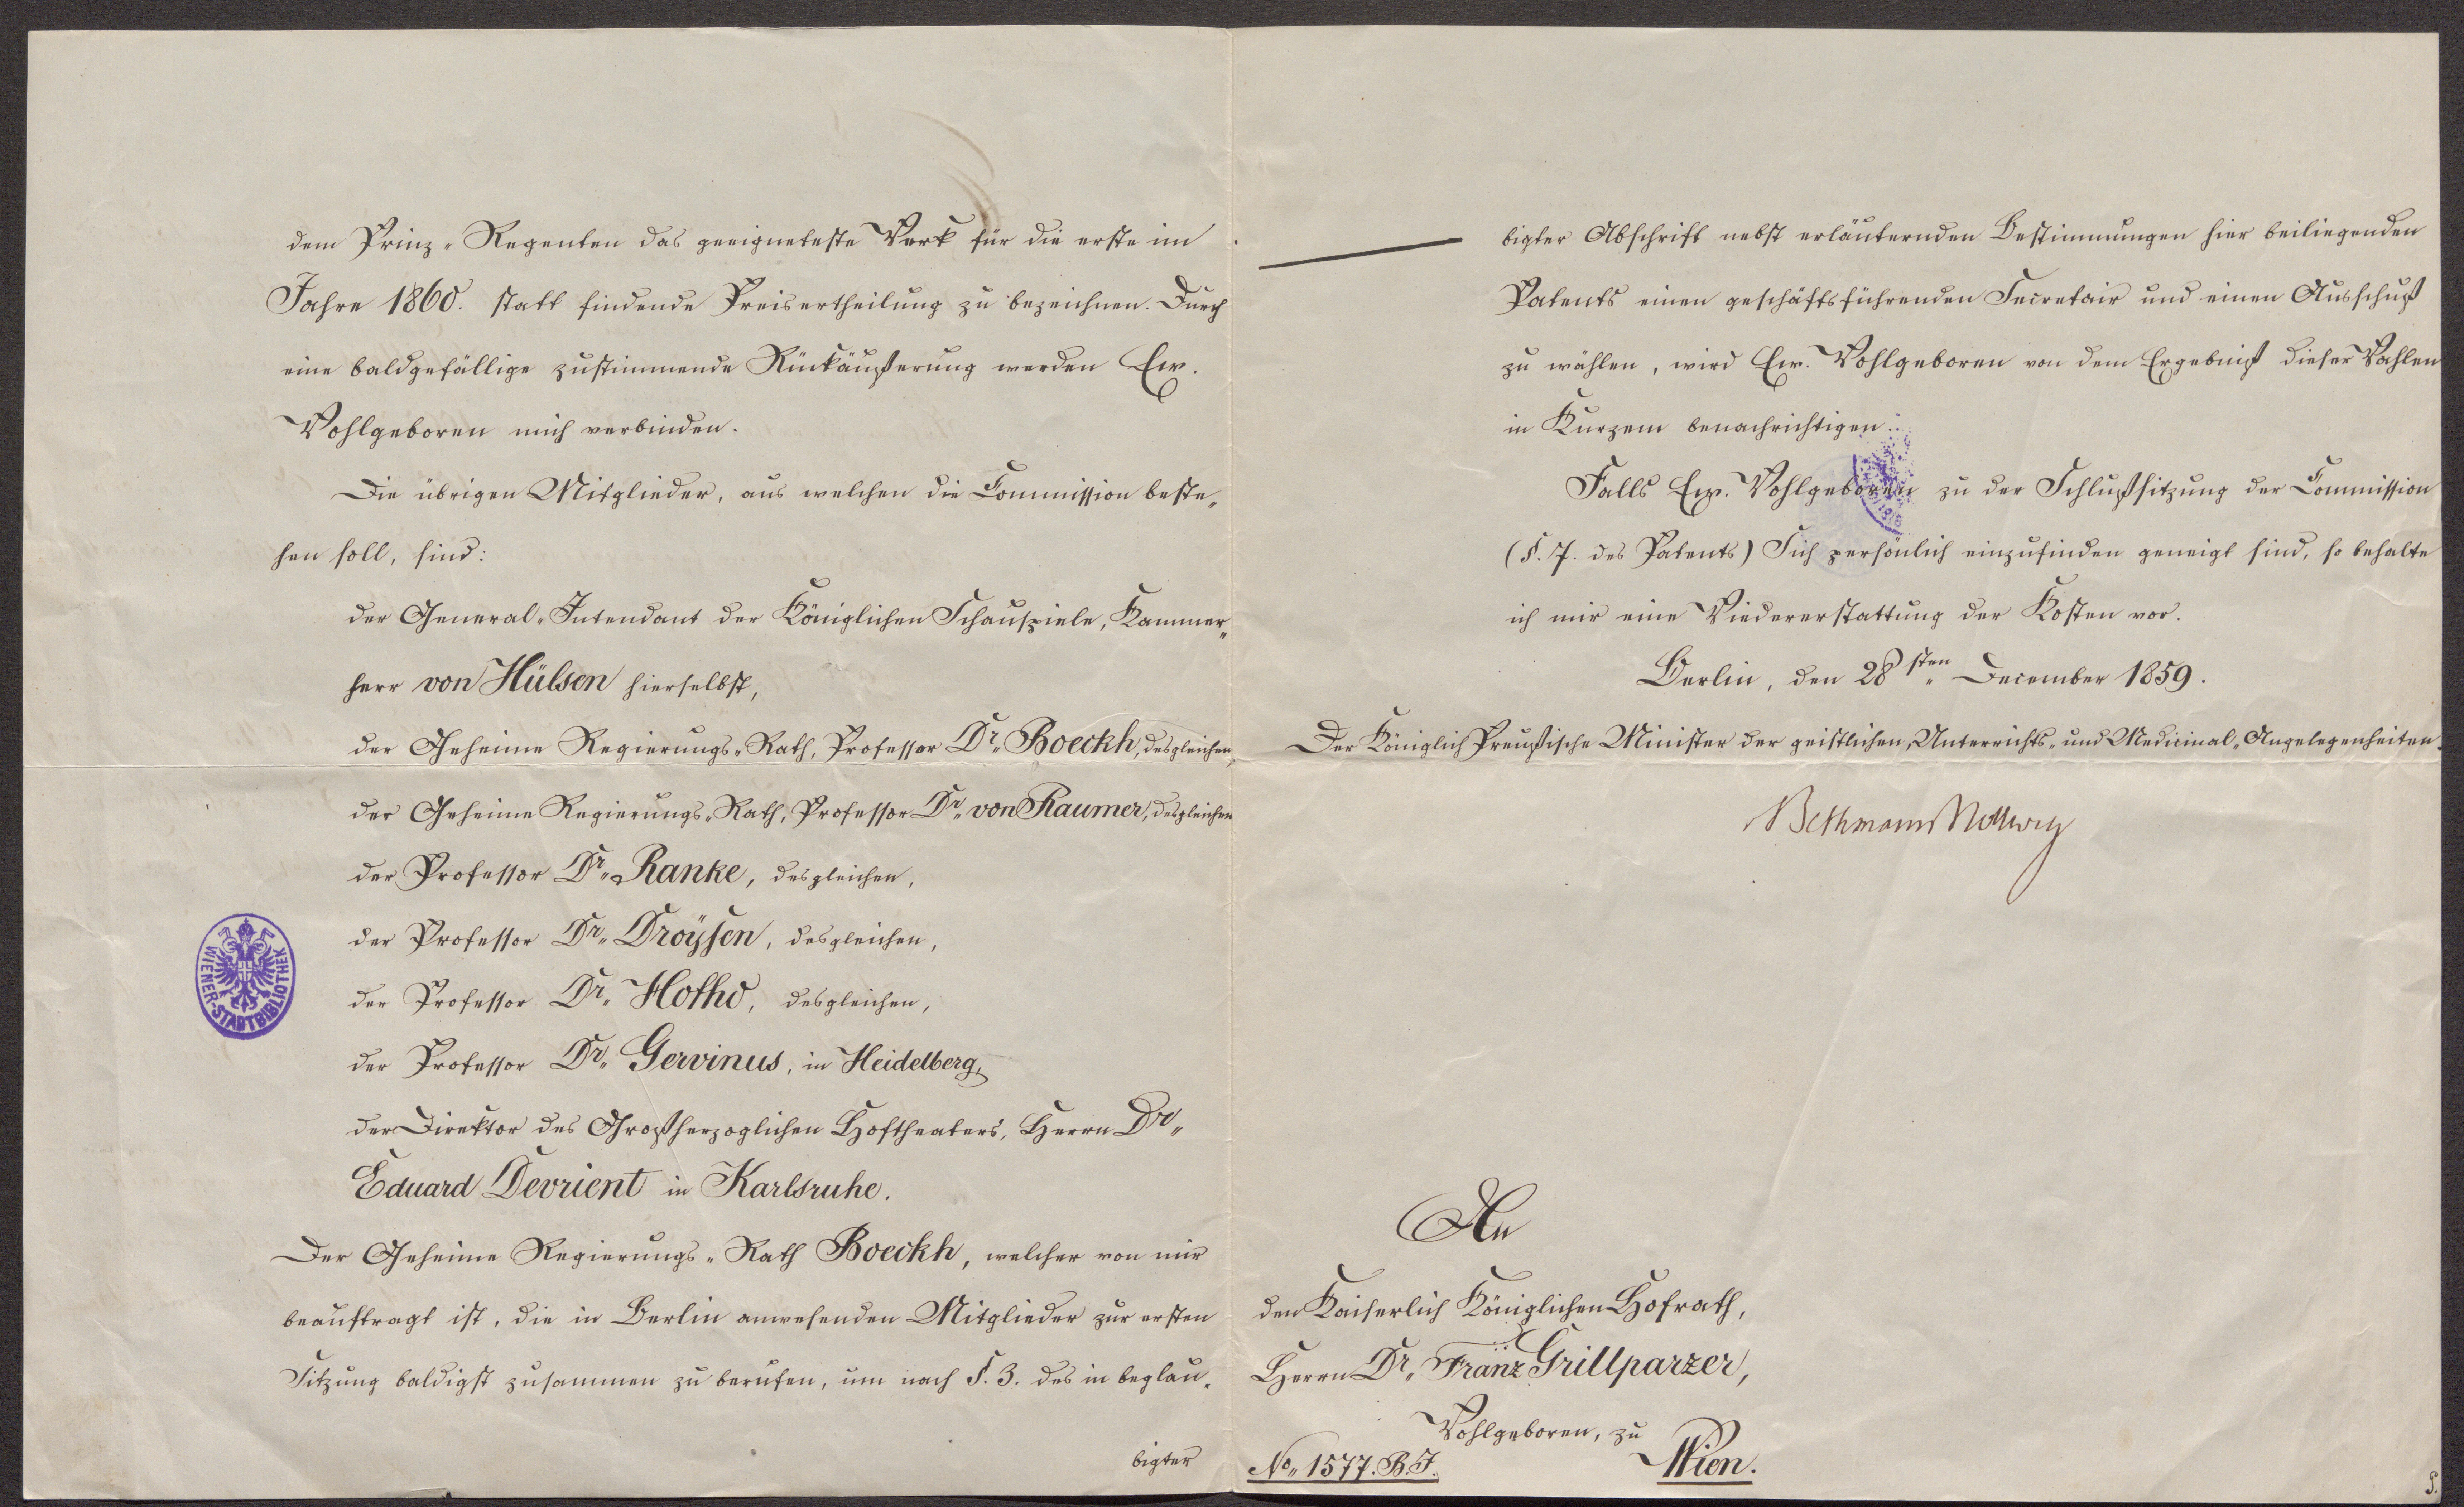 dem Prinz-Regenten das geeigneteste Werk für die erste im
Jahre 1860. statt findende Preisertheilung zu bezeichnen. Durch
eine baldgefällige zustimmende Rückäußerung werden Ew.
Wohlgeboren mich verbinden.
Die übrigen Mitglieder, aus welchen die Commission beste-
hen soll, sind:
der General-Intendant der Königlichen Schauspiele, Kammer-
herr von Hülsen hierselbst,
der Geheime Regierungs-Rath, Professor Dr. Boeckh, desgleichen,
der Geheime Regierungs-Rath, Professor Dr. von Raumer, desgleichen
der Professor Dr. Ranke, desgleichen,
der Professor Dr. Droÿsen, desgleichen,
der Professor Dr. Hotho, desgleichen,
der Professor Dr. Gervinus, in Heidelberg,
der Direktor des Großherzoglichen Hoftheaters, Herrn Dr.
Eduard Devrient in Karlsruhe.
Der Geheime Regierungs-Rath Boeckh, welcher von mir
beauftragt ist, die in Berlin anwesenden Mitglieder zur ersten
Sitzung baldigst zusammen zu berufen, um nach §. 3. des in beglau-
bigter
WIENER-STADTBIBLIOTHEK
bigter Abschrift nebst erläuternden Bestimmungen hier beiliegenden
Patents einen geschäftsführenden Secretair und einen Ausschuß
zu wählen, wird Ew. Wohlgeboren von dem Ergebniß dieser Wahlen
in Kurzem benachrichtigen.
Falls Ew. Wohlgeboren zu der Schlußsitzung der Commission
(§. 7. des Patents) Sich persönlich einzufinden geneigt sind, so behalte
ich mir eine Wiedererstattung der Kosten vor.
Berlin, den 28sten December 1859.
Der Königlich Preußische Minister der geistlichen, Unterrichts- und Medicinal-Angelegenheiten.
Bethmann Hollweg
An
den Kaiserlich Königlichen Hofrath,
Herrn Dr. Franz Grillparzer,
Wohlgeboren, zu
Wien.
No. 1577. B. I.